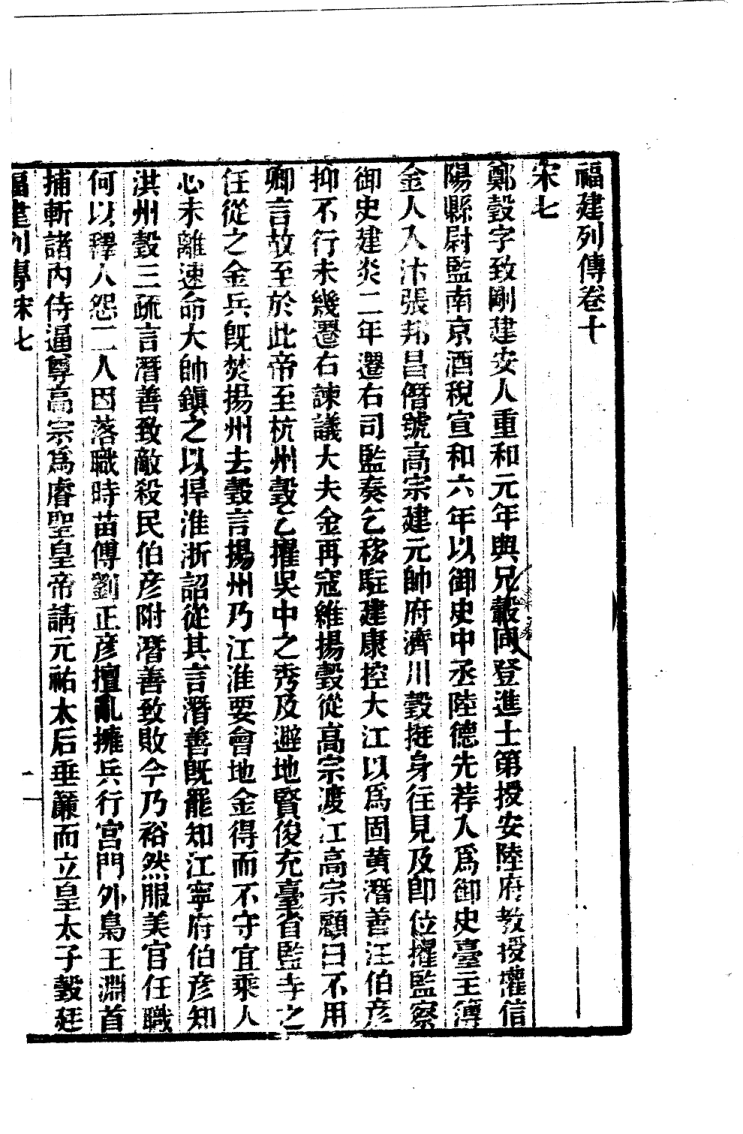 福建列傳卷十
宋七
鄭瑴字致剛建安人重和元年與兄瑴同登進士第授安陸府教授權信
陽縣尉監南京酒稅宣和六年以御史中丞陸德先荐入爲御史臺主簿
金人入汴張邦昌僭號高宗建元帥府濟川瑴挺身往見及卽位擢監察
御史建炎二年遷右司監奏乞移駐建康控大江以爲固黃潛善汪伯彥
抑不行未幾遷右諫議大夫金再寇維揚瑴從高宗渡江高宗顧曰不用
卿言故至於此帝至杭州瑴乞擢吳中之秀及避地賢俊充臺省監寺之
任從之金兵旣焚揚州去瑴言揚州乃江淮要會地金得而不守宜乘人
心未離速命大帥鎭之以捍淮浙詔從其言潛善旣罷知江寧府伯彥知
淇州瑴三疏言潛善致敵殺民伯彥附潛善致敗今乃裕然服美官任職
何以釋人怨二人因落職時苗傅劉正彥擅亂擁兵行宮門外梟王淵首
捕斬諸內侍逼尊高宗爲睿聖皇帝請元祐太后垂簾而立皇太子瑴廷
福建列傳宋七
一